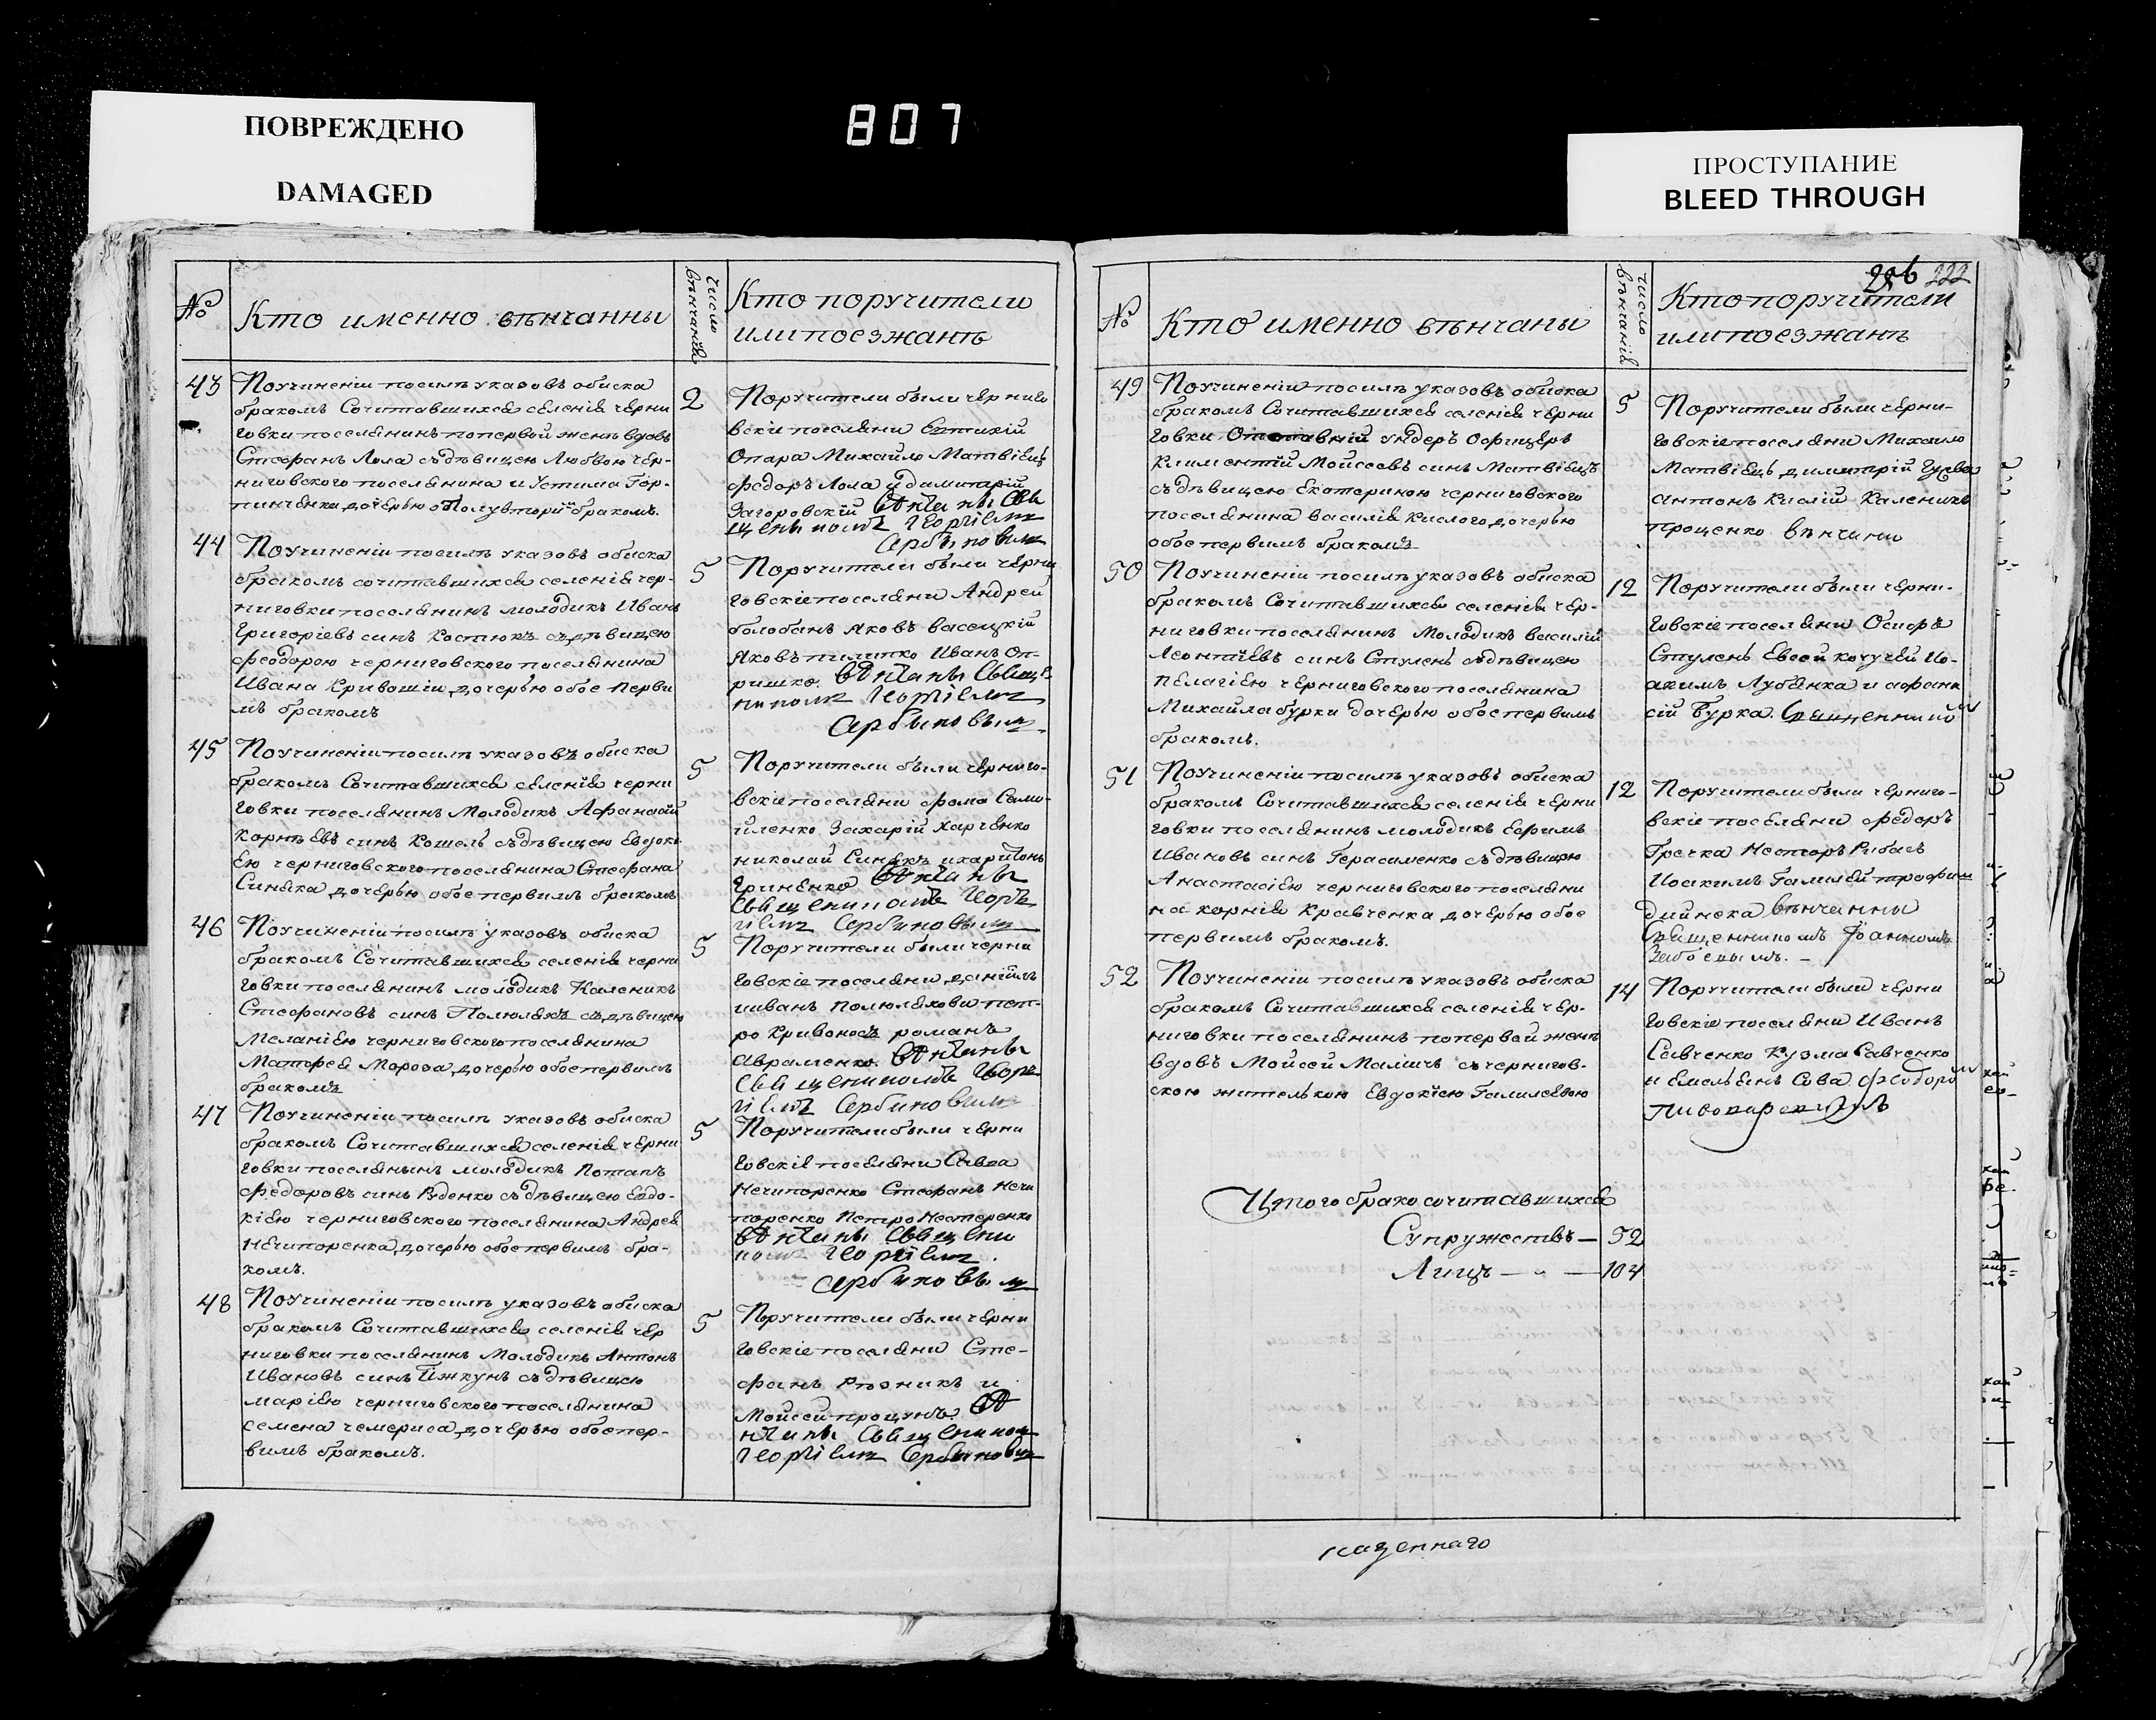 ПОВРЕЖДЕНО
DAMAGED
807
ПРОСТУПАНИЕ
BLEED THROUGH
№
Кто именно вѣнчанны
число вѣнчаній
Кто поручители
или поезжанѣ
43
Поучиненіи посилѣ указовъ обиска
бракомъ Сочитавшихся селенія черни
говки поселянинъ попервой женѣ вдовъ
Стефанъ Лола съдѣвицею Любвою чер-
ниговского поселянина Устима Гор-
пинченка дочерью Полувторим бракомъ.
2
Поручители были чернего
вскіе поселяни Евтихій
Опара Михайло Матвіецъ
федоръ Лола и димитрій
Загоровскій вѣнчаны Свя
щенникомъ Георгіемъ
Сербиновым
44
Поучиненіи посилѣ указовъ обиска
бракомъ сочитавшихся селенія чер-
ниговки поселянинъ молодикъ Иванъ
Григоріевъ синъ Костюкъ съдѣвицею
феодорою черниговского поселянина
Ивана Кривошіи дочерью обое Перви
мъ бракомъ
5
Поручители были черни
говскіе поселяни Андрей
болобанъ Яковъ васецкій
Яковъ пилипко Иванъ Оп-
ришко. вѣнчаны Свяще
никомъ Георгіемъ
Сербиновымъ
45
Поучиненіи посилѣ указовъ обиска
бракомъ Сочитавшихся селенія черни
говки поселянинъ Молодикъ Афанасій
Корнѣевъ синъ Кошель съдѣвицею Евдокі
ею черниговского поселянина Стефана
Синяка дочерью обое первимъ бракомъ
5
Поручители были черниго-
вскіе поселяни фома Само-
йленко Захарій Харченко
николай Синякъ ихаритонъ
Гриненко вѣнчаны
Священикомъ Геор
гіемъ Сербиновым
46
Поучиненіи посилѣ указовъ обиска
бракомъ Сочитавшихся селенія черни
говки поселянинъ молодикъ Каленикъ
Стефановъ синъ Полюляхъ съдѣвицею
Меланіею черниговского поселянина
Матфея Мороза дочерью обое первимъ
бракомъ
5
Поручители были черни
говскіе поселяни даніилъ
ииванъ Полюляхови пет-
ро Кривоносъ романъ
Авраменко. вѣнчаны
Священикомъ Геор
гіемъ Сербиновым
47
Поучиненіи посилѣ указовъ обиска
бракомъ Сочитавшихся селенія черни
говки поселянинъ молодикъ Потапъ
федоровъ синъ Руденко съдѣвицею Евдо-
кіею черниговского поселянина Андрея
Нечипоренка дочерью обое первимъ бра-
комъ.
5
Поручители были черни
говскіе поселяни Савва
Нечипоренко Стефанъ Нечи
поренко Петро Нестеренко
вѣнчаны Священи
комъ Георгіемъ.
Сербиновым
48
Поучиненіи посилѣ указовъ обиска
бракомъ Сочитавшихся селенія чер
ниговки поселянинъ Молодикъ Антонъ
Ивановъ синъ Пжкунъ съдѣвицею
маріею черниговского поселянина
семена чемериса дочерью обое пер-
вимъ бракомъ.
5
Поручители были черни
говскіе поселяни Сте-
фанъ Рѣзникъ и
Мойсей процунъ. вѣ
нчаны Священикомъ
Георгіемъ Сербиновым
226 222
№
Кто именно вѣнчаны
число вѣнчаній
Кто поручители
или поезжанъ
49
Поучиненіи посилѣ указовъ обиска
бракомъ Сочитавшихся селенія черни
говки Отставній ундеръ Офицеръ
Климентій Мойсеевъ синъ Матвіецъ
съдѣвицею Екотериною черниговского
поселянина василія Кислого дочерью
обое первимъ бракомъ
5
Поручители были черни-
говскіе поселяни Михайло
Матвіецъ димитрій Гусва
антонъ Кислій Каленикъ
проценко вѣнчини
50
Поучиненіи посилѣ указовъ обиска
бракомъ Сочитавшихся селенія чер-
ниговки поселянинъ Молодикъ василій
Леонтіевъ синъ Ступень съдѣвицею
пелагіею черниговского поселянина
Михайла бурки дочерью обое первимъ
бракомъ.
12
Поручители были черни-
говскіе поселяни Осифъ
Ступень Евсей кочучей Ио-
акимъ Лубянка и афана
сій Бурка. Священником
51
Поучиненіи посилѣ указовъ обиска
бракомъ Сочитавшихся селенія черни
говки поселянинъ молодикъ Ефимъ
Ивановъ синъ Герасименко съдѣвицею
Анастасіею черниговского поселяни
на корнія Кравченка дочерью обое
первимъ бракомъ.
12
Поручители были черниго-
вскіе поселяни федоръ
Гречка Несторъ Рибасъ
Иоакимъ Гамилей трофим
дийнека вѣнчанны
Священникомъ Іоанномъ
52
Поучиненіи посилѣ указовъ обиска
бракомъ Сочитавшихся селенія чер-
ниговки поселянинъ попервой женѣ
вдовъ Мойсей Маличъ съчернигов-
скою жителькою Евдокіею Гамилевою
14
Поручители были черни
говскіе поселяни Иванъ
Савченко Кузма Савченко
и Емельянъ Сова Федором
Итого бракосочитавшихся
Супружествъ — 52
Лицъ — „ — 104
казеннаго